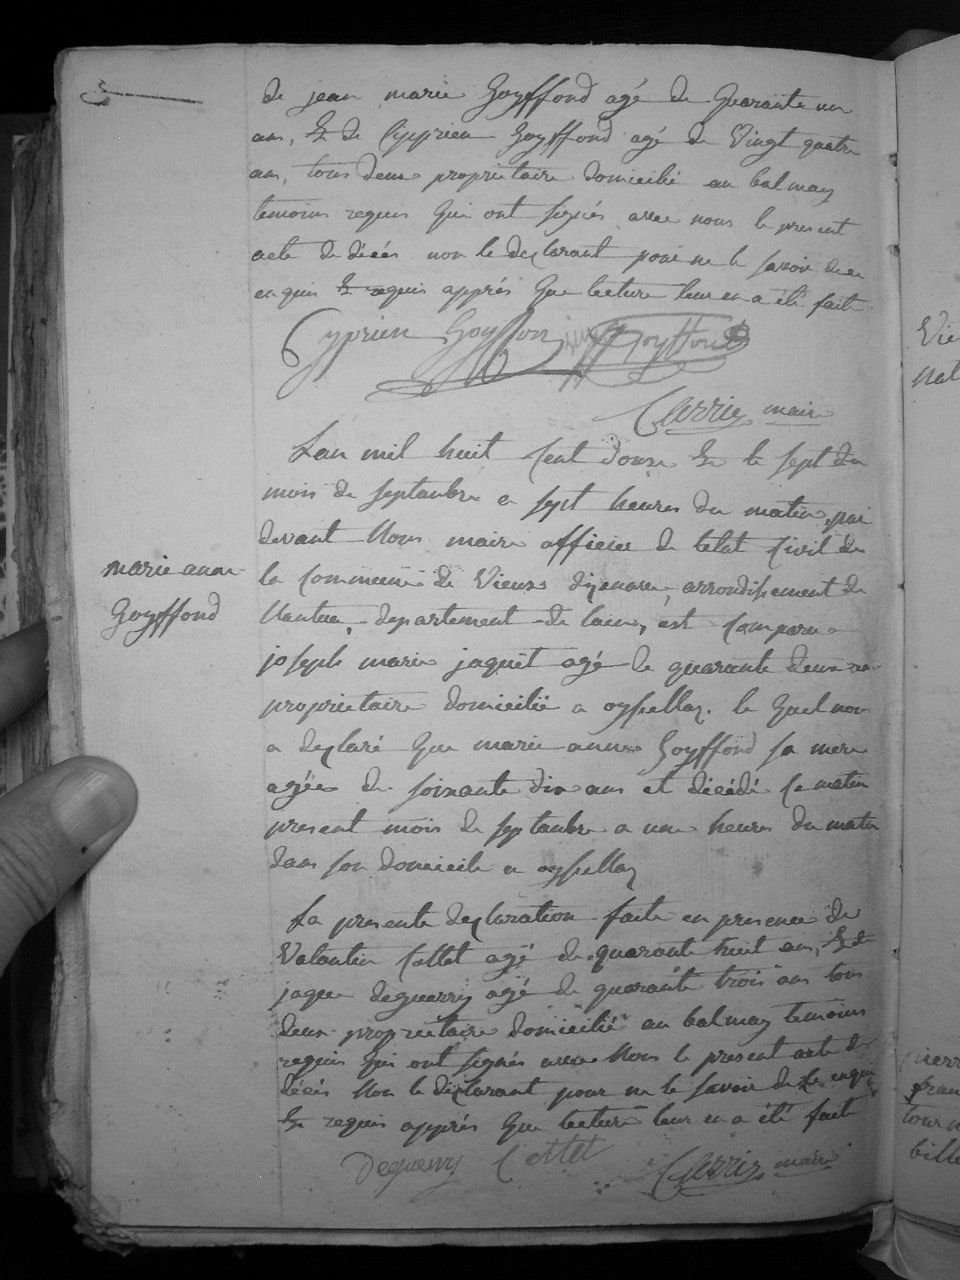 de jean marie Goyffond agé de Quarante un
ans, & de Cyprien Goyffond agé de Vingt quatre
ans, tous deux proprietaire domicilié au balmay
temoins requis qui ont signés avec nous le present
acte de décés non le declarant pour ne le savoir de ce
enquis & requis apprés que lecture leur en a été faite
Cyprien Goyffon Goyffond
Carrier maire
Lan mil huit Cent douze & le sept du
mois de septambre a sept heures du matin, par
devant Nous maire officier de letat Civil de
la Commune de Vieux dizenave, arrondissement de
Nantua, departement de lain, est Comparu
joseph marie jaquet agé de quarante deux ans
proprietaire domicilié a oyssellaz. le quel nous
a declaré que marie anne Goyffond sa mere
agée de soixante dix ans et décédé Ce matin
present mois de septambre a une heures du matin
dans son domicile a oyssellaz
marie anne
Goyffond
La presente declaration faite en presence de
Valantin Cottet agé de quarante huit ans, & de
jaque deguerry agé de quarante trois ans tous
deux proprietaire domicilié au balmay temoins
requis qui ont signés avec Nous le present acte de
décés Non le declarant pour ne le savoir de Ce enquis
& requis apprés que lecture leur en a été fait
Deguerry Cottet
Carrier maire
Vie
Nat
pierr
fran
tourn
bille